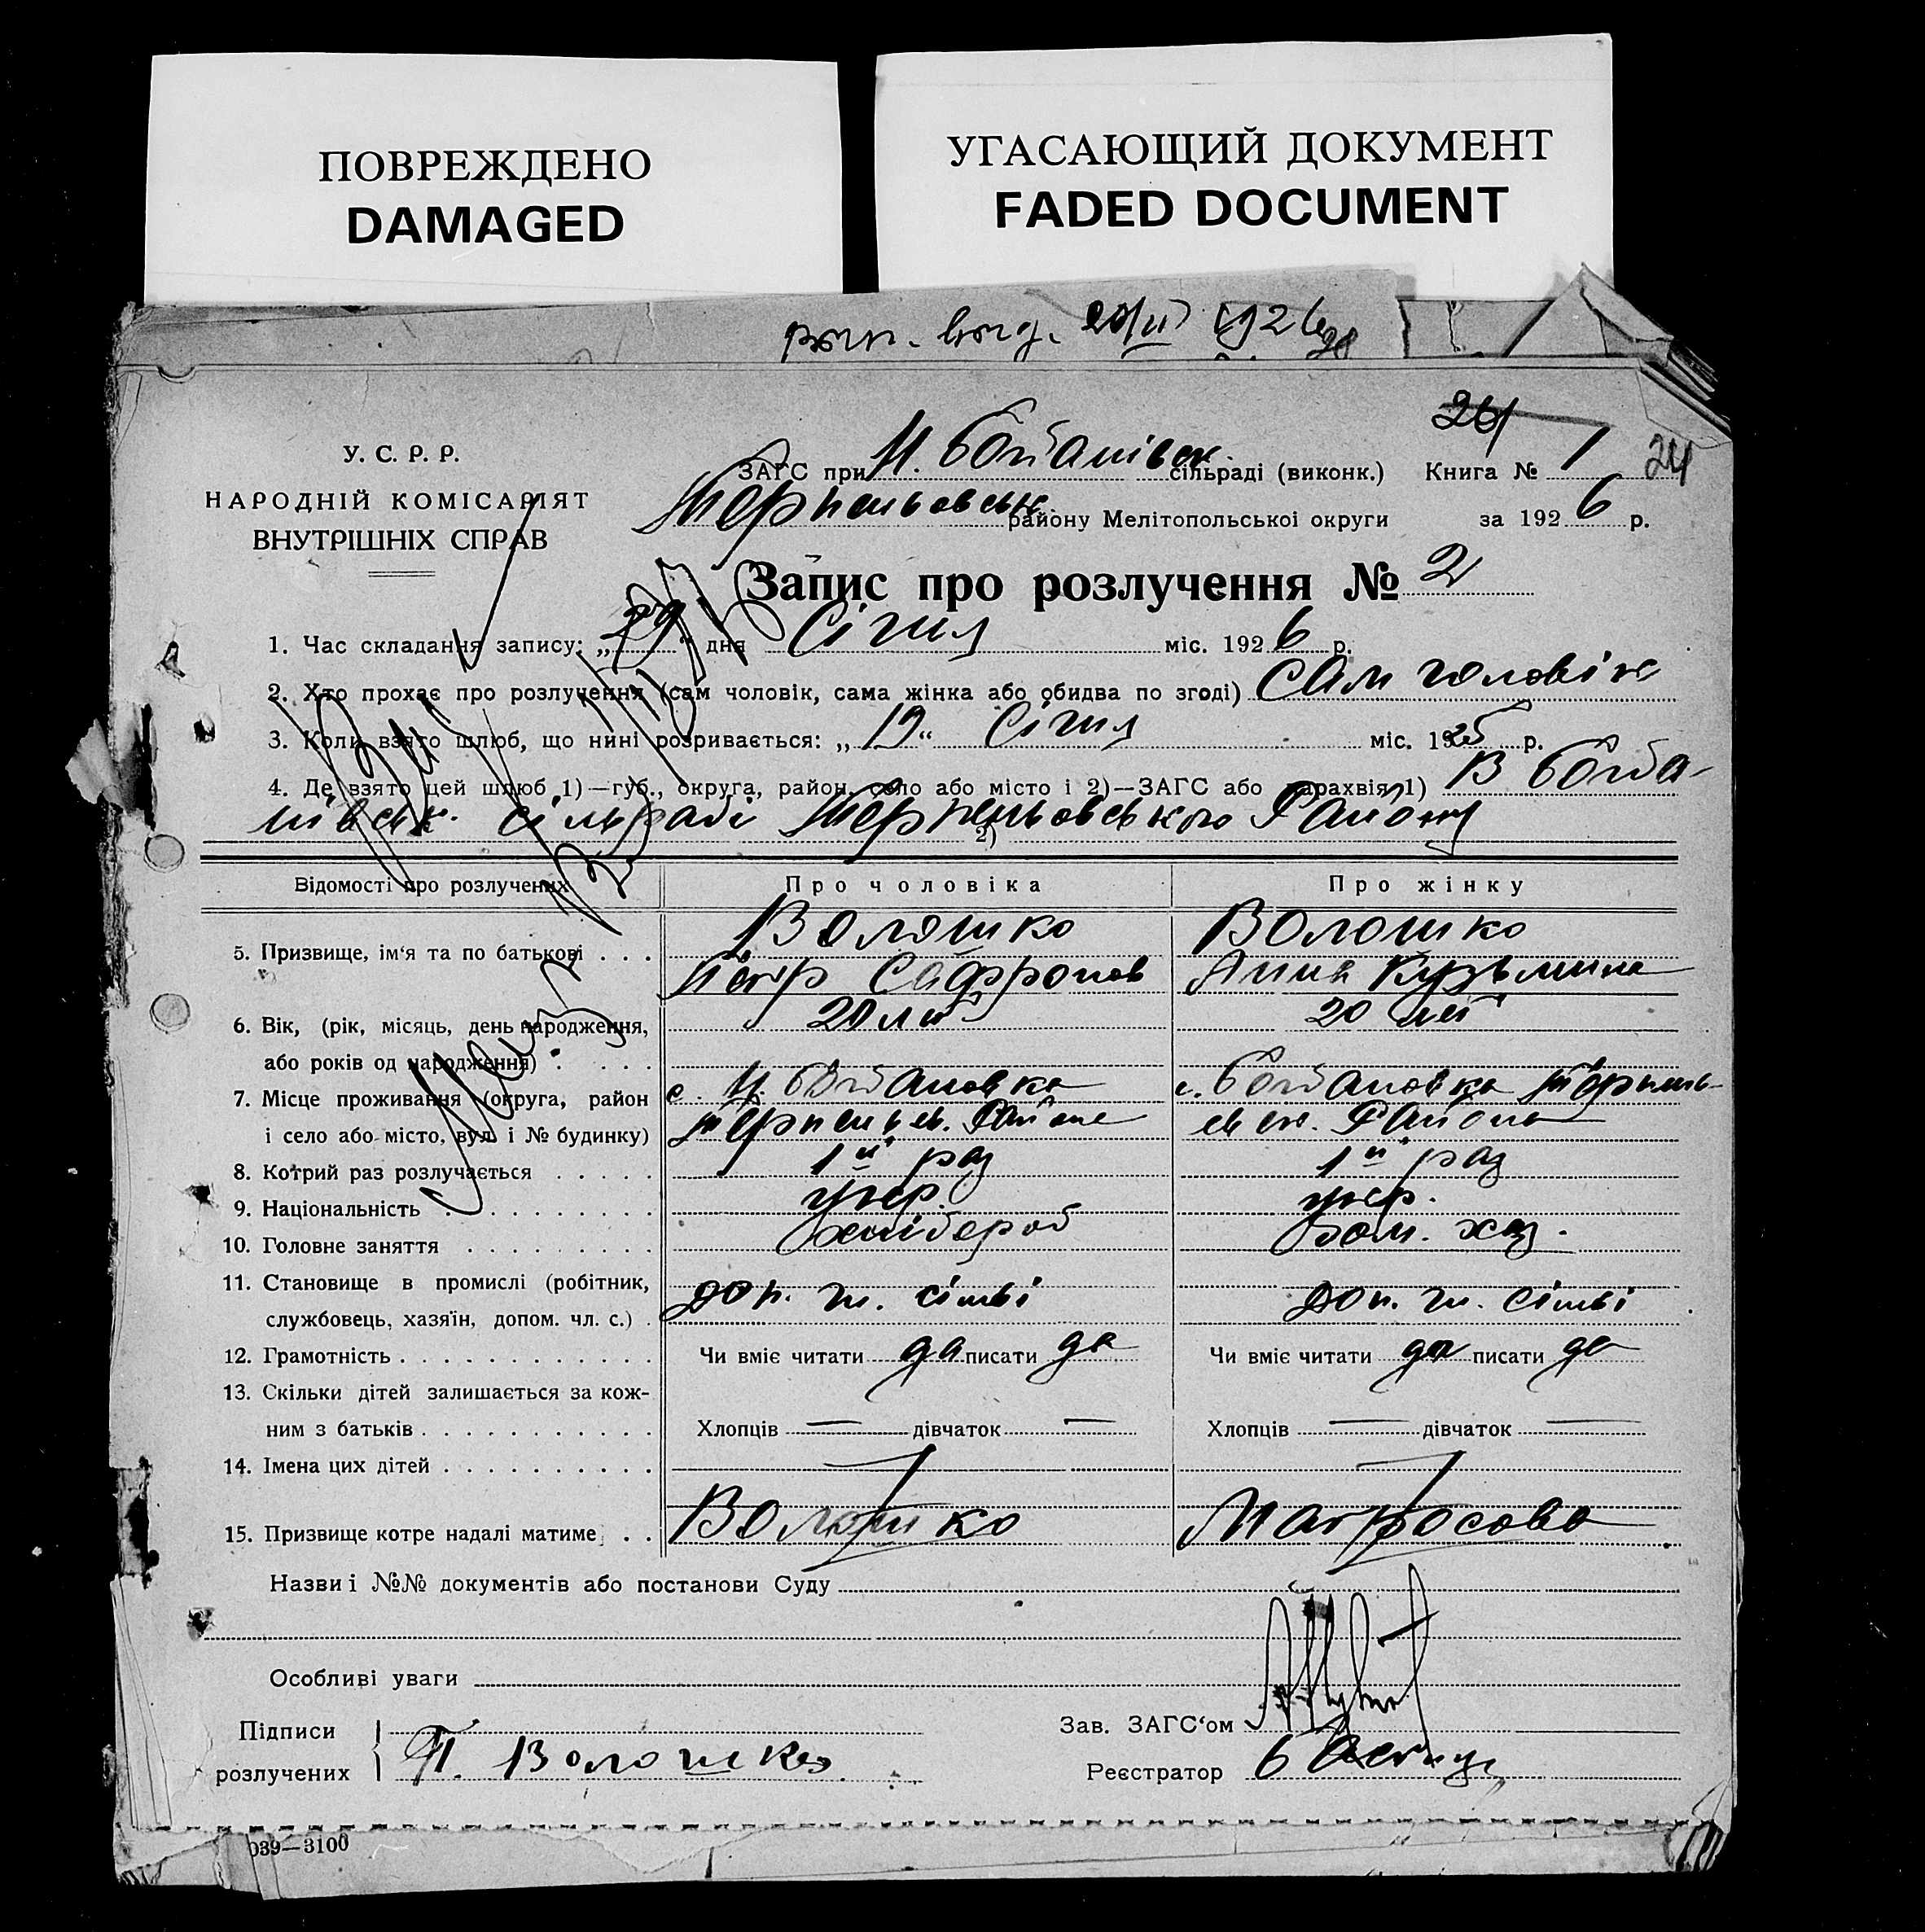 ПОВРЕЖДЕНО
DAMAGED
УГАСАЮЩИЙ ДОКУМЕНТ
FADED DOCUMENT
1926
24
У. С. Р. Р.
НАРОДНІЙ КОМІСАРІЯТ
ВНУТРІШНІХ СПРАВ
ЗАГС при Н. Богданівск. сільраді (виконк.) Книга № 1 24
Терпеньовськ. району Мелітопольської округи за 1926 р.
Запис про розлучення № 2
1. Час складання запису: „29“ дня Січня міс. 1926 р.
2. Хто прохає про розлучення (сам чоловік, сама жінка або обидва по згоді) Сам чоловік
3. Коли взято шлюб, що нині розривається: „19“ Січня міс. 1925 р.
4. Де взято цей шлюб 1)—губ., округа, район, село або місто і 2)—ЗАГС або парахвія 1) В Богда-
нівськ. сільраді Терпеньовського Району
2)
Відомості про розлучених Про чоловіка Про жінку
5. Призвище, ім‘я та по батькові . . . Волошко Волошко
Петр Сафронов Анна Кузьмина
6. Вік, (рік, місяць, день народження, 20 лет 20 лет
або років од народження) . . . .
7. Місце проживання (округа, район с. Н. Богдановка с. Богдановка Терпень-
і село або місто, вул. і № будинку) Терпеньев. Района евск. Района
8. Котрий раз розлучається . . . . . 1й раз 1й раз
9. Національність . . . . . . . . . укр. укр.
10. Головне заняття . . . . . . . . . хлібороб дом. хоз.
11. Становище в промислі (робітник,
службовець, хазяїн, допом. чл. с.) . доп. чл. сімьі доп. чл. сімьі
12. Грамотність . . . . . . . . . . . . Чи вміє читати да писати да Чи вміє читати да писати да
13. Скільки дітей залишається за кож-
ним з батьків . . . . . . . . . . . Хлопців — дівчаток — Хлопців — дівчаток —
14. Імена цих дітей . . . . . . . . . .
15. Призвище котре надалі матиме . . Волошко Матросова
Назви і №№ документів або постанови Суду
Особливі уваги
Підписи
розлучених П. Волошко
Зав. ЗАГС‘ом
Реєстратор
039—3100